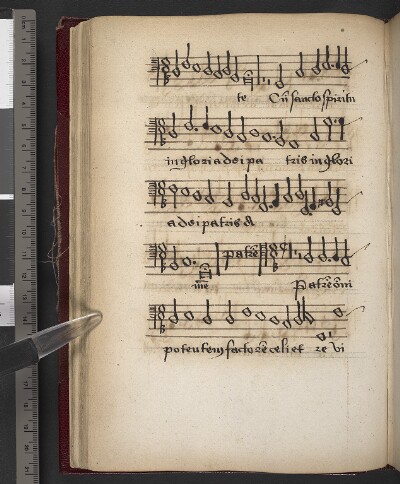 te Cū sancto spiritu
in gloria dei pa tris in glori
a dei patris A
mē Patrē Patrē om̄i
potentem factorē celi et re vi